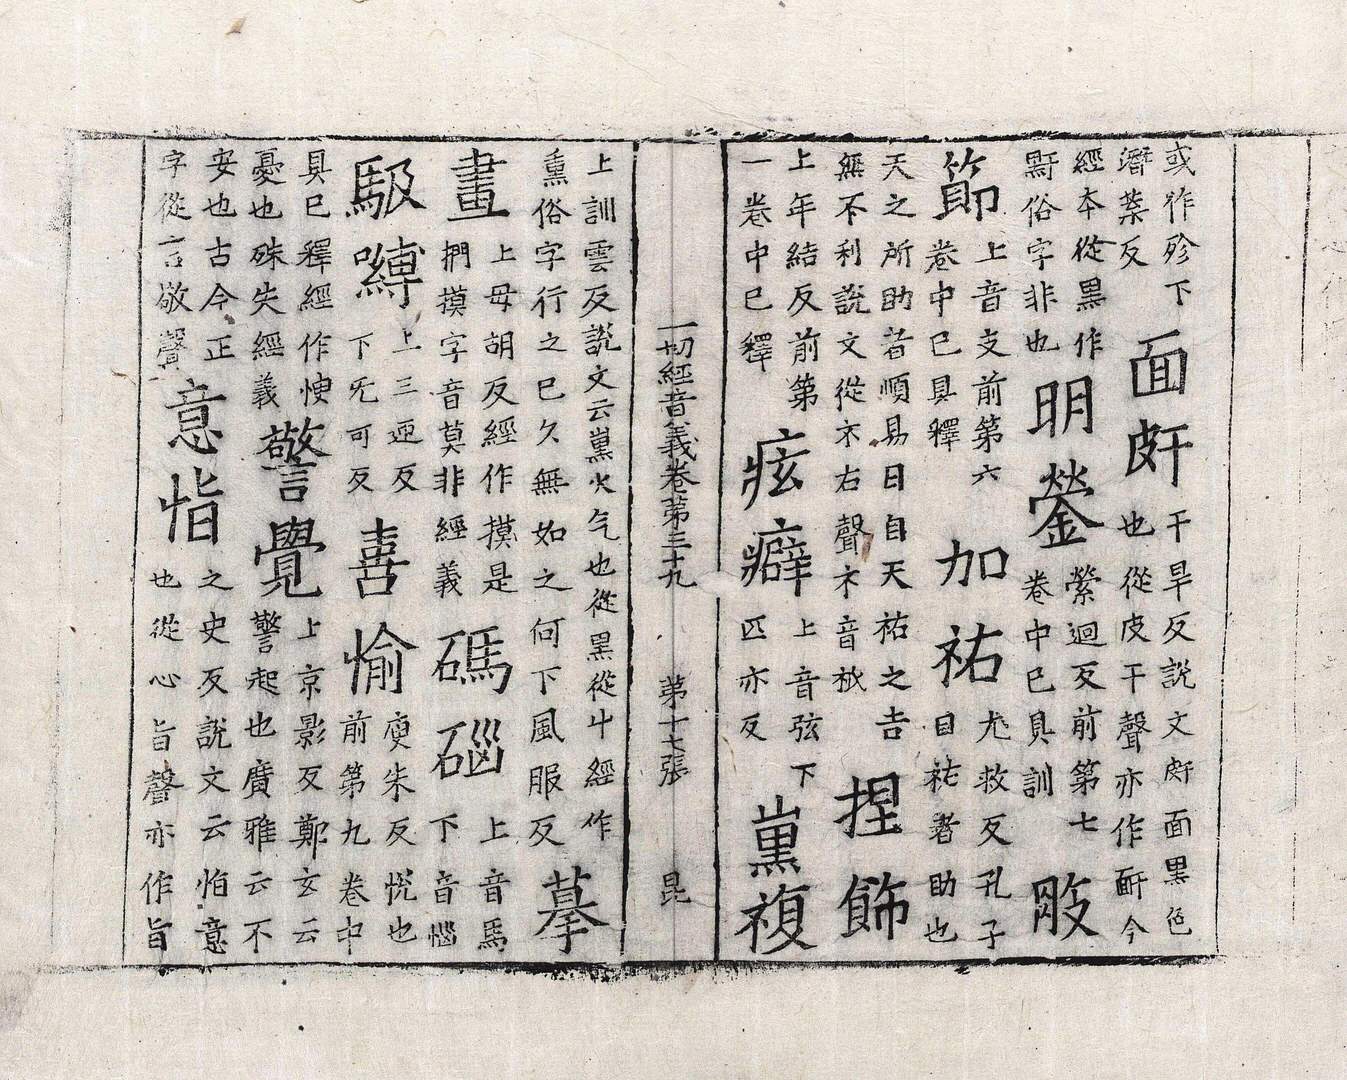 或作㱽下
潛葉反
面皯
干旱反說文皯面黑色
也從皮干聲亦作䵟今
經本從黑作
䵟俗字非也
明鎣
縈迴反前第七
卷中已具訓
節
上音支前第六
卷中已具釋
加祐
尤救反孔子
曰祐者助也
天之所助者順易曰自天祐之吉
無不利說文從示右聲示音祇
揑飾
上年結反前第
一卷中已釋
痃癖
上音弦下
匹亦反
熏複
一切經音義卷第三十九 第十七張 昆
上訓雲反說文云熏火气也從黑從屮經作
熏俗字行之已久無如之何下風服反
摹
畫
上母胡反經作摸是
捫摸字音莫非經義
碼碯
上音馬
下音惱
馺
上三迊反
下旡可反
喜愉
庾朱反悅也
前第九卷中
具已釋經作
憂也殊失經義
警覺
上京影反鄭玄云
警起也廣雅云不
安也古今正
字從言敬聲
意恉
之史反說文云恉意
也從心旨聲亦作旨